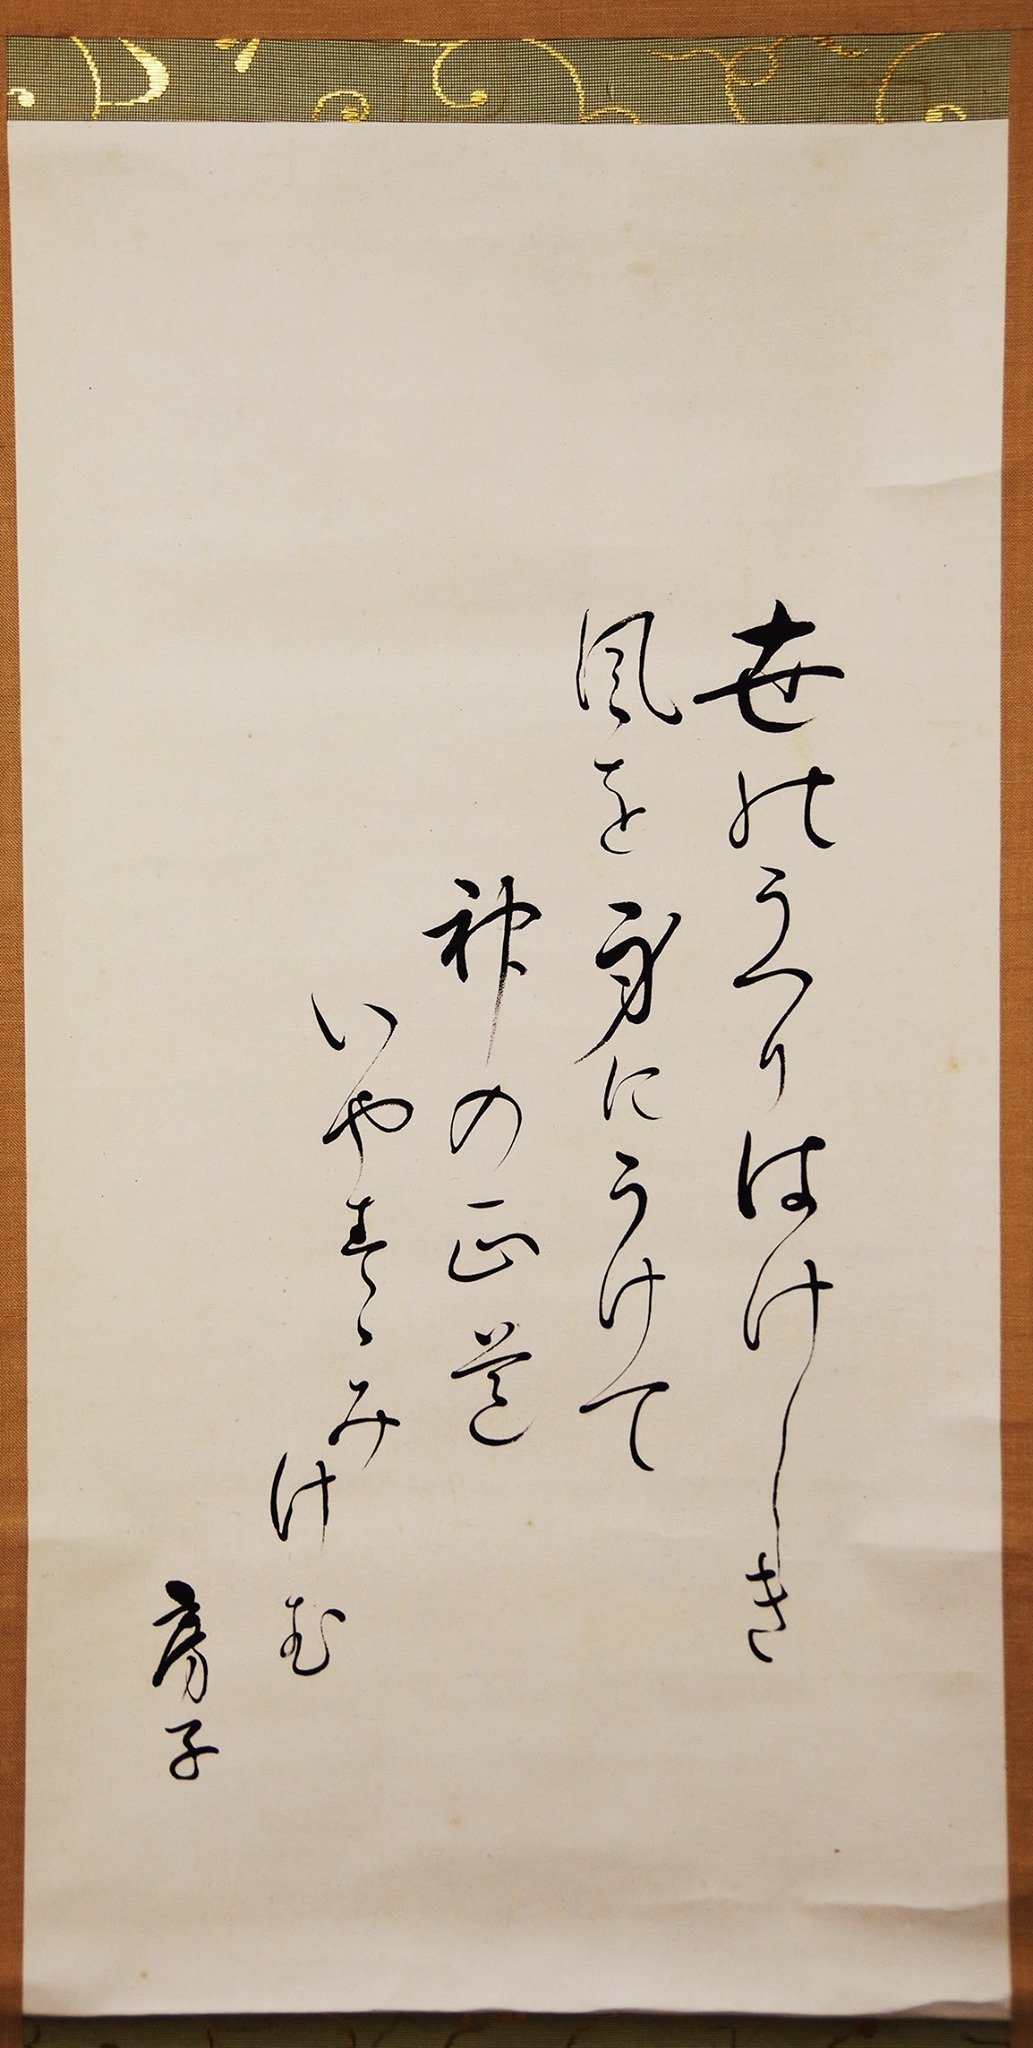 世のうつりはけしき
風を身にうけて
神の正道
いやすゝみ
けむ
房子